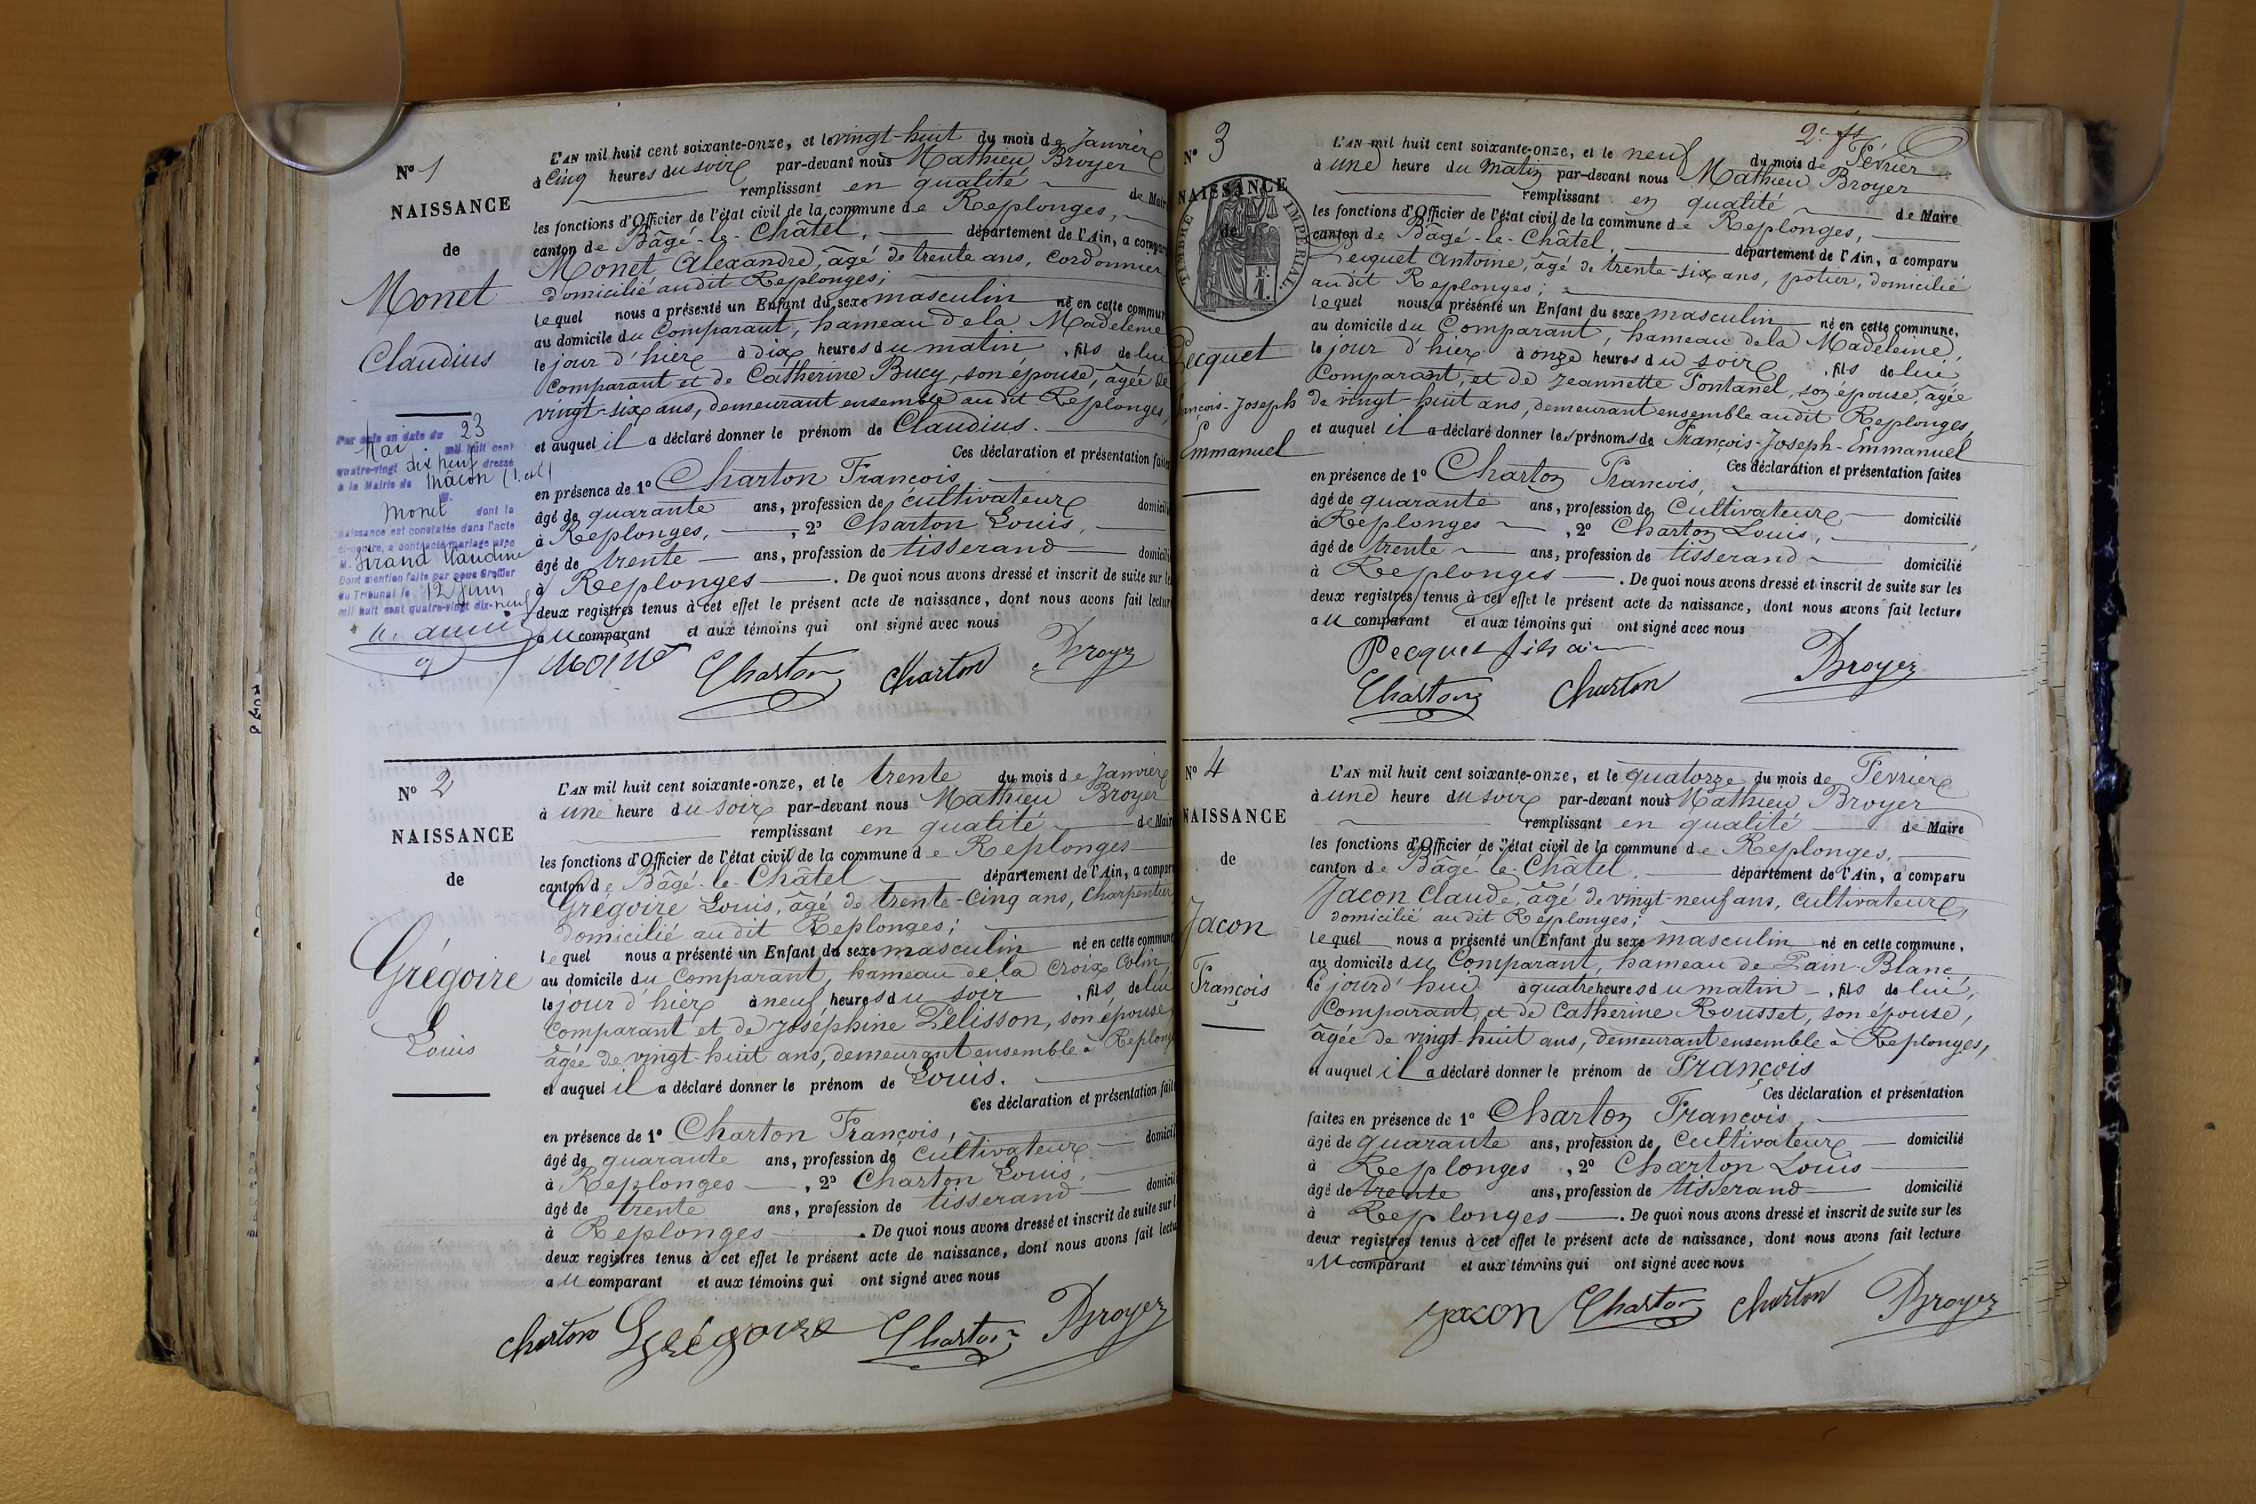 N° 1
NAISSANCE
de
Monet
Claudius
Par acte en date du 23
Mai mil huit cent
quatre-vingt dix neuf dressé
à la Mairie de Mâcon (S. et L)
M.
Monet dont la
naissance est constatée dans l'acte
ci-contre, a contracté mariage avec
M. Claudine
Dont mention faite par nous Greffier
du Tribunal le 12 Juin
mil huit cent quatre-vingt dix-neuf
L'AN mil huit cent soixante-onze, et le vingt-huit du mois de Janvier
à Cinq heures du soir par-devant nous Mathieu Broyer
remplissant en qualité de Mair
les fonctions d'Officier de l'état civil de la commune de Replonges,
canton de Bâgé-le-Châtel, département de l'Ain, a compar
Monet Alexandre, âgé de trente ans, Cordonnier
domicilié audit Replonges;
lequel nous a présenté un Enfant du sexe masculin né en cette commun
au domicile du Comparant, hameau de la Madeleine
le jour d'hier à dix heures du matin, fils de lui
Comparant et de Catherine Bucy, son épouse, âgée de
vingt-six ans, demeurant ensemble audit Replonges,
et auquel il a déclaré donner le prénom de Claudius.
Ces déclaration et présentation faites
en présence de 1° Charton François,
âgé de quarante ans, profession de cultivateur domicilié
à Replonges, , 2° Charton Louis,
âgé de trente ans, profession de tisserand domicilié
à Replonges . De quoi nous avons dressé et inscrit de suite sur le
deux registres tenus à cet effet le présent acte de naissance, dont nous avons fait lecture
au comparant et aux témoins qui ont signé avec nous
Charton Charton Broyer
N° 2
NAISSANCE
de
Grégoire
Louis
L'AN mil huit cent soixante-onze, et le trente du mois de Janvier
à une heure du soir par-devant nous Mathieu Broyer
remplissant en qualité de Mair
les fonctions d'Officier de l'état civil de la commune de Replonges
canton de Bâgé-le-Châtel département de l'Ain, a comparu
Grégoire Louis, âgé de trente-Cinq ans, Charpentier
domicilié audit Replonges;
lequel nous a présenté un Enfant du sexe masculin né en cette commune
au domicile du Comparant, hameau de la Croix Colin
le jour d'hier à neuf heures du soir, fils de lui
Comparant et de Joséphine Pelisson, son épouse
âgée de vingt-huit ans, demeurant ensemble à Replonges
et auquel il a déclaré donner le prénom de Louis.
Ces déclaration et présentation faites
en présence de 1° Charton François,
âgé de quarante ans, profession de Cultivateur domicil
à Replonges , 2° Charton Louis,
âgé de trente ans, profession de tisserand domicil
à Replonges . De quoi nous avons dressé et inscrit de suite sur l
deux registres tenus à cet effet le présent acte de naissance, dont nous avons fait lectu
au comparant et aux témoins qui ont signé avec nous
Charton Grégoire Charton Broyer
2e ft
N° 3
NAISSANCE
de
TIMBRE IMPÉRIAL
1 F.
Pecquet
François-Joseph
Emmanuel
L'AN mil huit cent soixante-onze, et le neuf du mois de Février
à une heure du matin par-devant nous Mathieu Broyer
remplissant en qualité de Maire
les fonctions d'Officier de l'état civil de la commune de Replonges,
canton de Bâgé-le-Châtel, département de l'Ain, a comparu
Pecquet Antoine, âgé de trente-six ans, potier, domicilié
audit Replonges;
lequel nous a présenté un Enfant du sexe masculin né en cette commune,
au domicile du Comparant, hameau de la Madeleine,
le jour d'hier à onze heures du soir, fils de lui
Comparant, et de Jeannette Fontanel, son épouse, âgée
de vingt-huit ans, demeurant ensemble audit Replonges,
et auquel il a déclaré donner les prénoms de François-Joseph-Emmanuel
Ces déclaration et présentation faites
en présence de 1° Charton François,
âgé de quarante ans, profession de Cultivateur domicilié
à Replonges , 2° Charton Louis,
âgé de trente ans, profession de tisserand domicilié
à Replonges . De quoi nous avons dressé et inscrit de suite sur les
deux registres tenus à cet effet le présent acte de naissance, dont nous avons fait lecture
au comparant et aux témoins qui ont signé avec nous
Pecquet Broyer
Charton Charton
N° 4
NAISSANCE
de
Jacon
François
L'AN mil huit cent soixante-onze, et le quatorze du mois de Février
à une heure du soir par-devant nous Mathieu Broyer
remplissant en qualité de Maire
les fonctions d'Officier de l'état civil de la commune de Replonges,
canton de Bâgé-le-Châtel, département de l'Ain, a comparu
Jacon Claude, âgé de vingt-neuf ans, cultivateur,
domicilié audit Replonges;
lequel nous a présenté un Enfant du sexe masculin né en cette commune,
au domicile du Comparant, hameau de Pain-Blanc,
le jourd'hui à quatre heures du matin, fils de lui,
Comparant et de Catherine Rousset, son épouse,
âgée de vingt-huit ans, demeurant ensemble à Replonges,
et auquel il a déclaré donner le prénom de François
Ces déclaration et présentation
faites en présence de 1° Charton François,
âgé de quarante ans, profession de Cultivateur domicilié
à Replonges , 2° Charton Louis
âgé de trente ans, profession de tisserand domicilié
à Replonges . De quoi nous avons dressé et inscrit de suite sur les
deux registres tenus à cet effet le présent acte de naissance, dont nous avons fait lecture
au comparant et aux témoins qui ont signé avec nous
Jacon Charton Charton Broyer